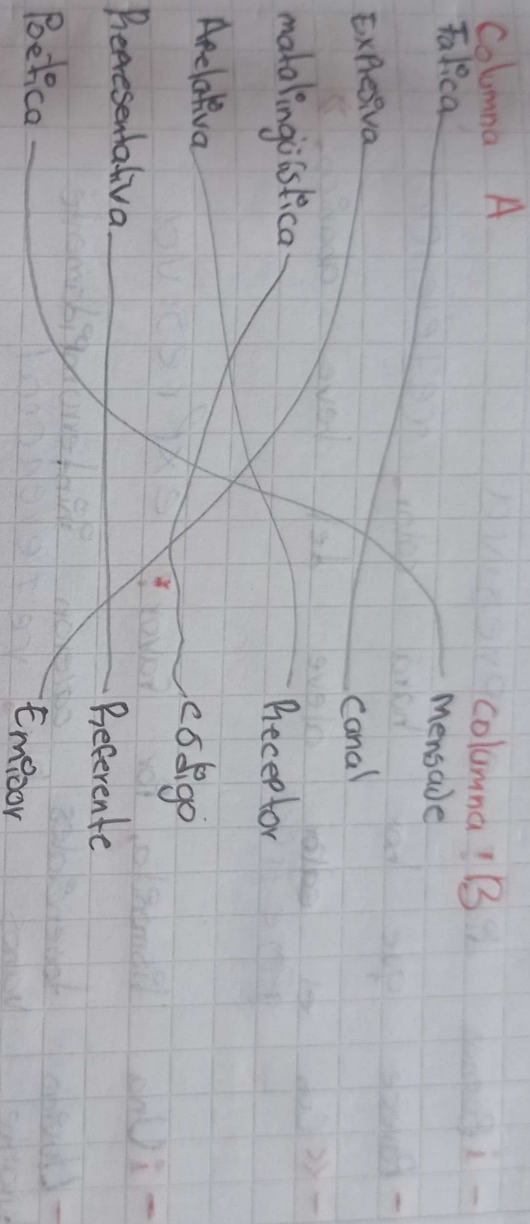 Columna A
Fatica
Expresiva
matalingüística
Apelativa
Representativa
Poética
columna: B
mensaje
canal
Receptor
código
Referente
Emisor